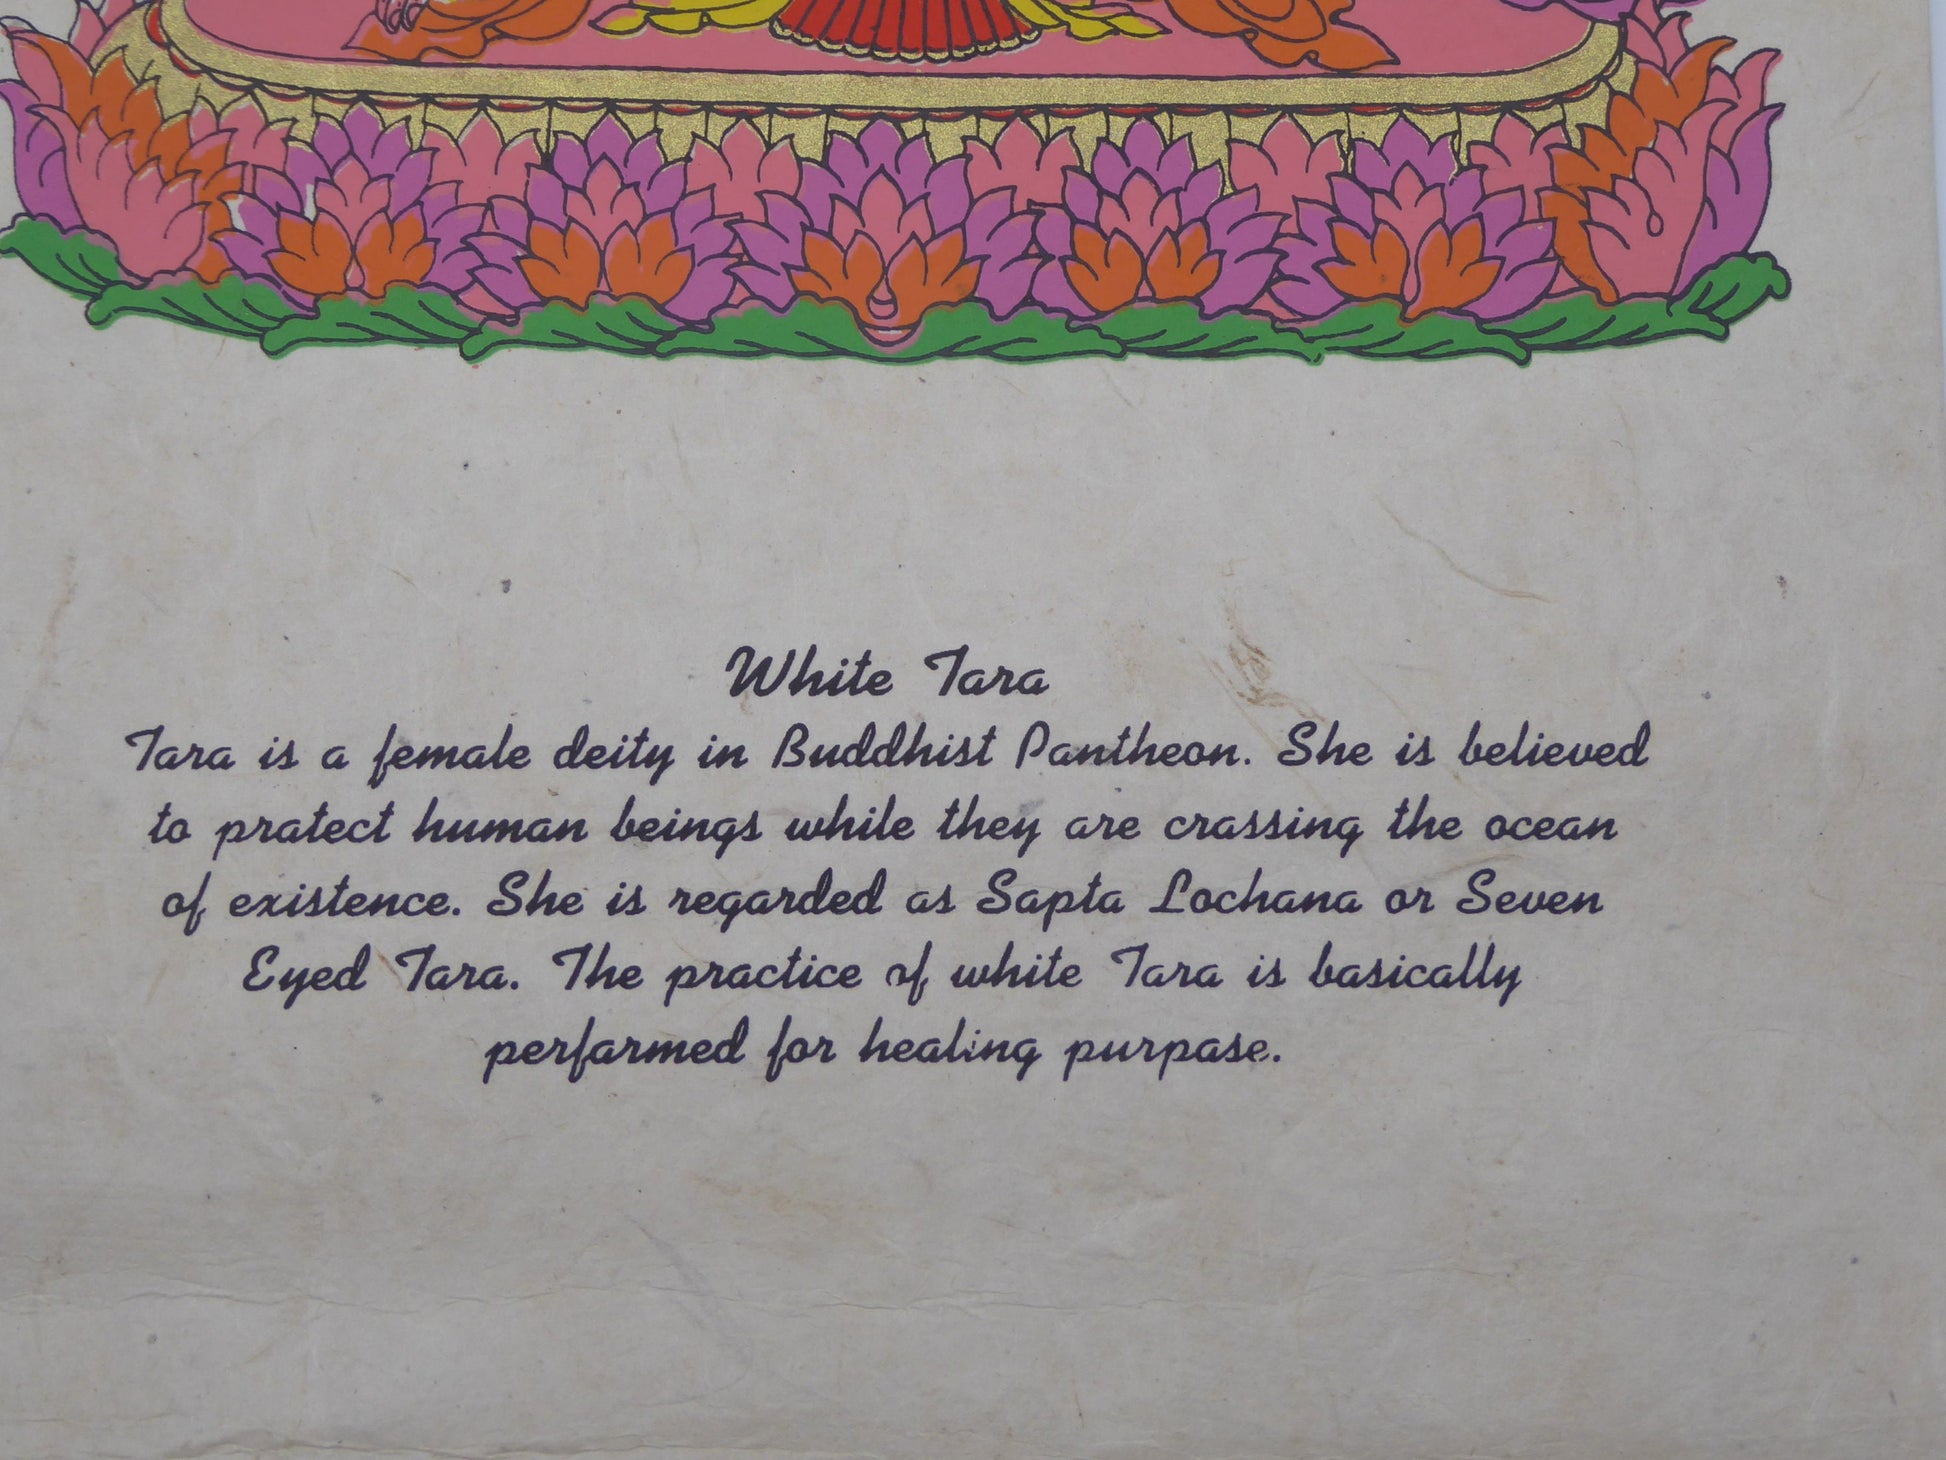 White Tara
Tara is a female deity in Buddhist Pantheon. She is believed
to pratect human beings while they are crassing the ocean
of existence. She is regarded as Sapta Lochana or Seven
Eyed Tara. The practice of white Tara is basically
perfarmed for healing purpase.